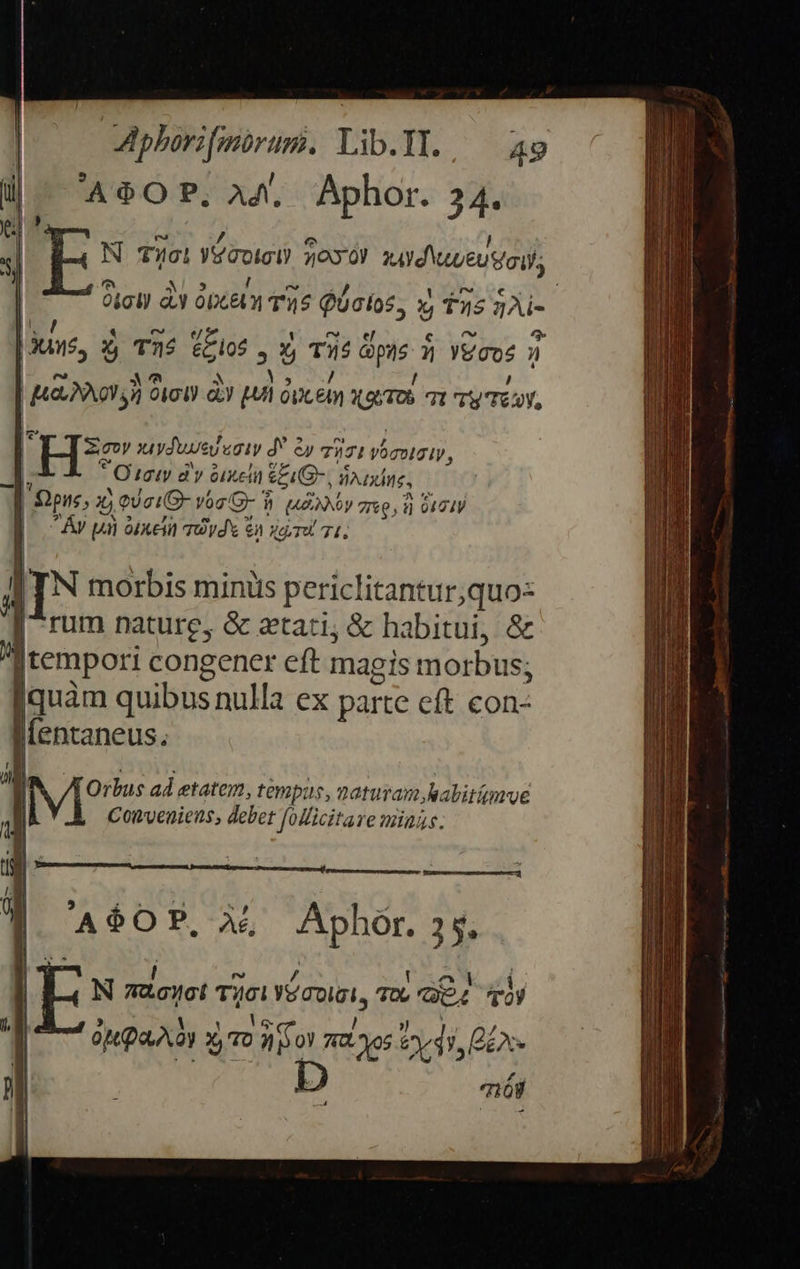 Aphoriſmorum. Lib.II. 49
ἈΦΟΡ. λδ. Aphor. 34.
ἘΝ τῇσι νούσοισιν ἧσσον κινδυνεύουσιν,
οἷσιν ἂν οἰκείη τῆς φύσιος, καὶ τῆς ἡλι-
κίης, καὶ τῆς ἕξιος, καὶ τῆς ὥρης ἡ νοῦσος ᾖ
μᾶλλον, ἢ οἷσιν ἂν μὴ οἰκείη κατά τι τουτέων.
Ἧσσον κινδυνεύουσιν δ' ἐν τῇσι νόσοισιν,
Οἷσιν ἂν οἰκείη ἕξιος, ἡλικίης,
Ὥρης, καὶ φύσιος νόσος ᾖ μᾶλλόν περ, ἢ οἷσιν
Ἂν μὴ οἰκείη τῶνδε ἔῃ κατά τι.
IN morbis minùs periclitantur, quo-
rum naturę, & ætati, & habitui, &
tempori congener eſt magis morbus;
quàm quibus nulla ex parte eſt con-
ſentaneus.
MOrbus ad etatem, tempus, naturam, habitúmve
Conveniens, debet ſollicitare minùs.
ἈΦΟΡ. λέ. Aphor. 35.
ἘΝ πάσῃσι τῇσι νούσοισι, τὰ περὶ τὸν
ὀμφαλὸν καὶ τὸ ἦτρον πάχος ἔχειν, βέλ-
D τιόν